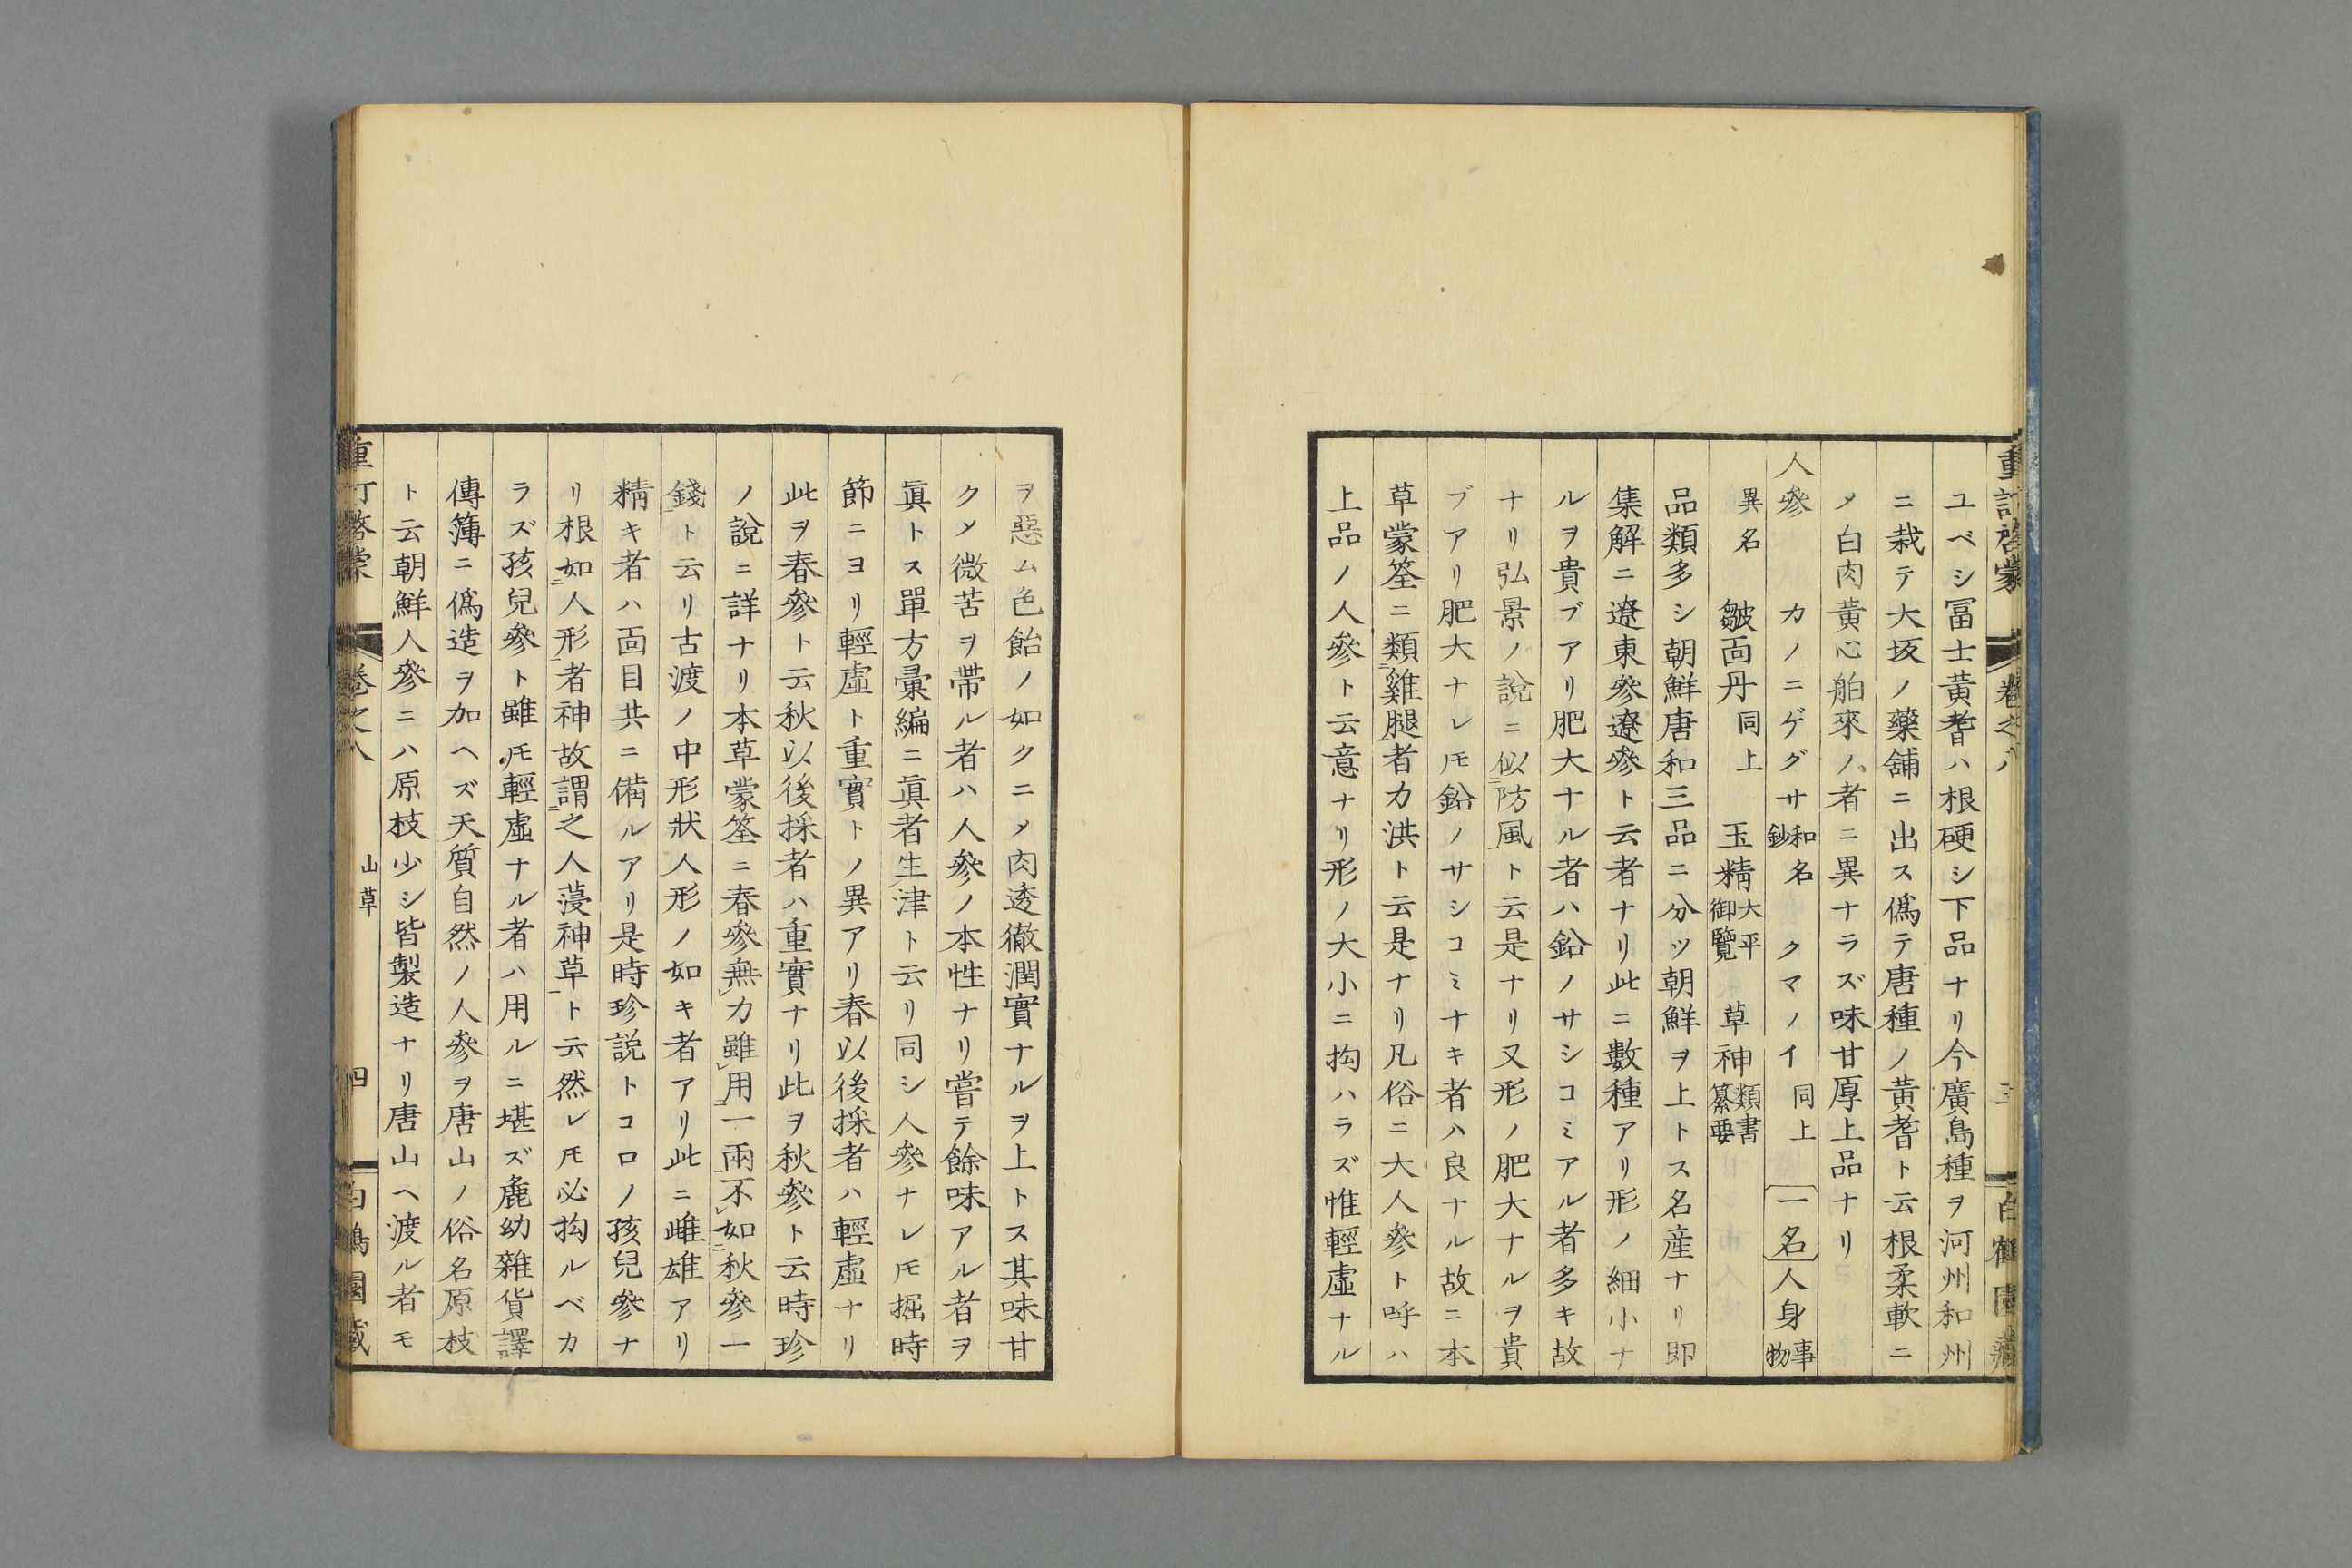 重訂啓蒙 卷之八 三 白鶴園藏
ユベシ冨士黃耆ハ根硬シ下品ナリ今廣島種ヲ河州和州
ニ栽テ大坂ノ藥舖ニ出ス僞テ唐種ノ黃耆ト云根柔軟ニ
メ白肉黃心舶來ノ者ニ異ナラズ味甘厚上品ナリ
人參 カノニゲグサ和名鈔 クマノイ同上 一名人身事物
異名 皺面丹同上 玉精大平御覽 草神類書纂要
品類多シ朝鮮唐和三品ニ分ツ朝鮮ヲ上トス名産ナリ即
集解ニ遼東參遼參ト云者ナリ此ニ數種アリ形ノ細小ナ
ルヲ貴ブアリ肥大ナル者ハ鉛ノサシコミアル者多キ故
ナリ弘景ノ說ニ似防風ト云是ナリ又形ノ肥大ナルヲ貴
ブアリ肥大ナレ𪜈鉛ノサシコミナキ者ハ良ナル故ニ本
草蒙筌ニ類雞腿者力洪ト云是ナリ凡俗ニ大人參ト呼ハ
上品ノ人參ト云意ナリ形ノ大小ニ拘ハラズ惟輕虛ナル
ヲ惡ム色飴ノ如クニメ肉透徹潤實ナルヲ上トス其味甘
クメ微苦ヲ帶ル者ハ人參ノ本性ナリ嘗テ餘味アル者ヲ
眞トス單方彙編ニ眞者生津ト云リ同シ人參ナレ𪜈掘時
節ニヨリ輕虛ト重實トノ異アリ春以後採者ハ輕虛ナリ
此ヲ春參ト云秋以後採者ハ重實ナリ此ヲ秋參ト云時珍
ノ說ニ詳ナリ本草蒙筌ニ春參無力雖用一兩不如秋參一
錢ト云リ古渡ノ中形狀人形ノ如キ者アリ此ニ雌雄アリ
精キ者ハ面目共ニ備ルアリ是時珍説トコロノ孩兒參ナ
リ根如人形者神故謂之人薓神草ト云然レ𪜈必拘ルベカ
ラズ孩兒參ト雖𪜈輕虛ナル者ハ用ルニ堪ズ麁幼雜貨譯
傳簿ニ僞造ヲ加ヘズ天質自然ノ人參ヲ唐山ノ俗名原枝
ト云朝鮮人參ニハ原枝少シ皆製造ナリ唐山ヘ渡ル者モ
重訂啓蒙 卷之八 山草 四 白鶴園藏